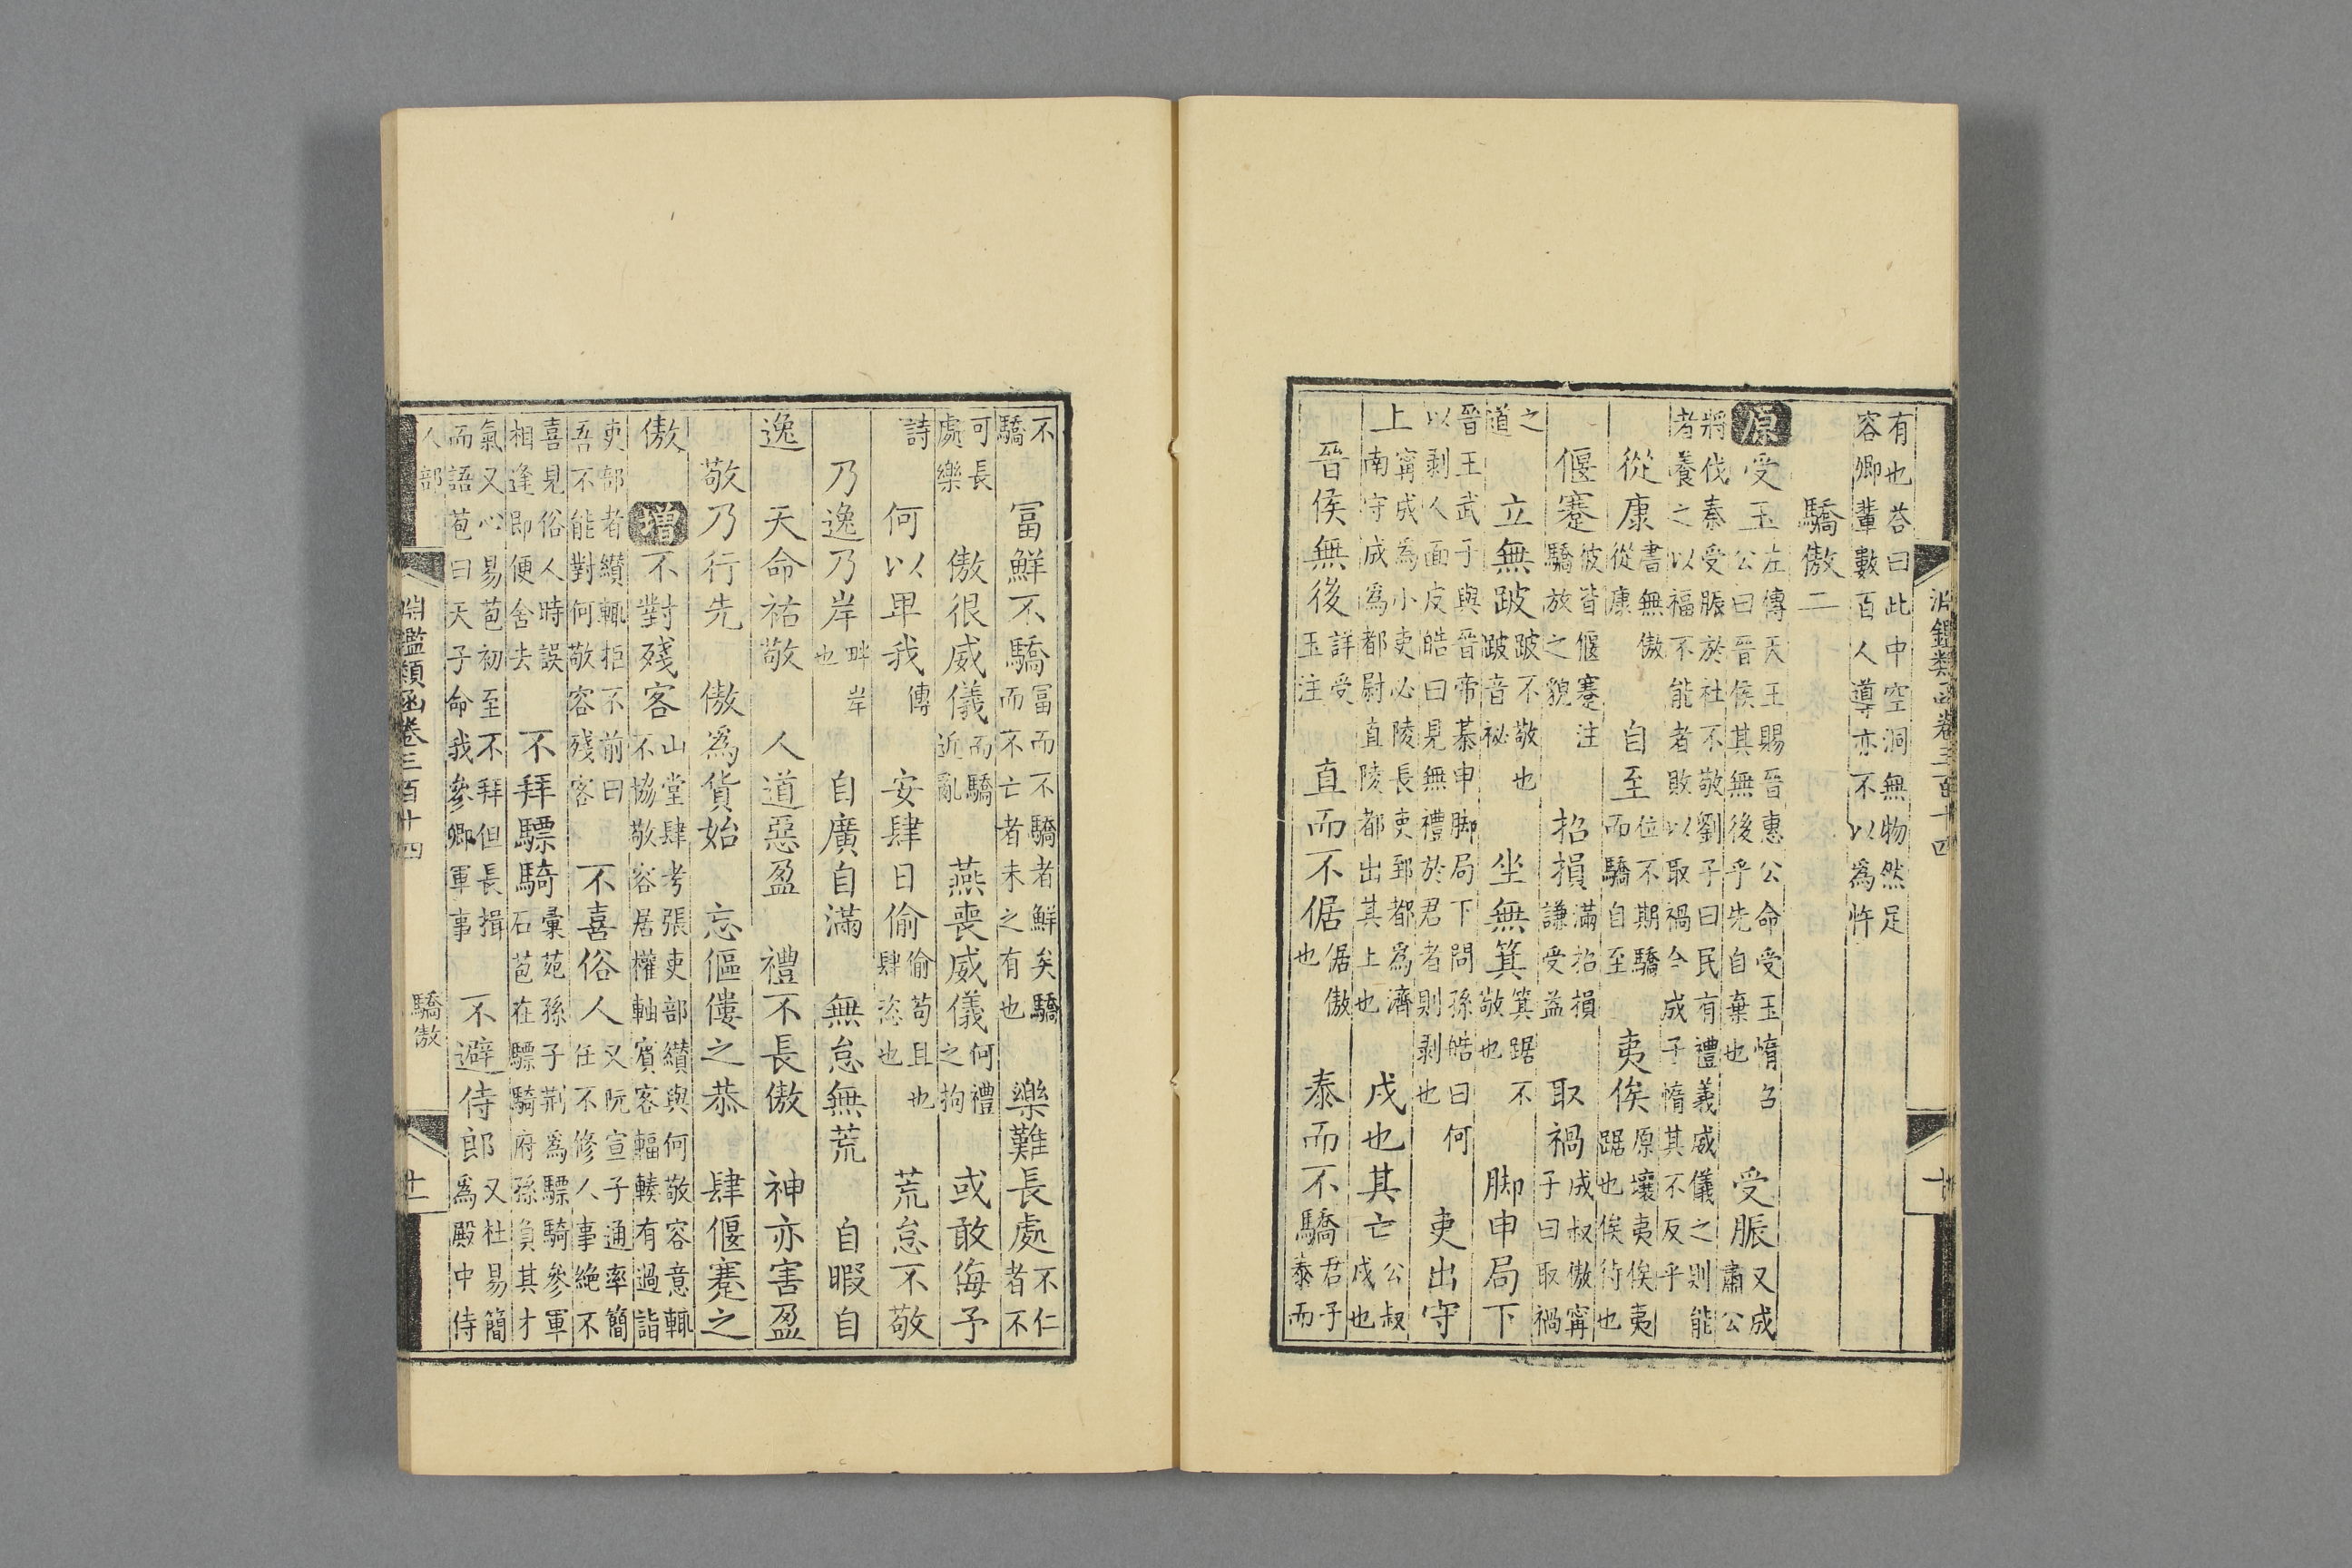 淵鑑類函卷三百十四 十
有也荅曰此中空洞無物然足
容卿輩數百人導亦不以為忤
驕傲二
原 受玉 左傳天王賜晉惠公命受玉惰召公曰晉侯其無後乎先自棄也 受脤 又成肅公
將伐秦受脤於社不敬劉子曰民有禮義威儀之則能
者養之以福不能者敗以取禍今成子惰其不反乎
從康 書無傲從康 自至 位不期驕而驕自至 夷俟 原壤夷俟夷踞也俟待也
偃蹇 彼皆偃蹇注驕放之貌 招損 滿招損謙受益 取禍 成叔傲寗子曰取禍
之道 立無跛 跛不敬也跛音祕 坐無箕 箕踞不敬也 脚申局下
晉王武子與晉帝棊申脚局下問孫皓曰何以剥人面皮皓曰見無禮於君者則剥也 吏出守
上 寗成為小吏必陵長吏郅都為濟南守成為都尉直陵都出其上也 戌也其亡 公叔戌也
晉侯無後 詳受玉注 直而不倨 倨傲也 泰而不驕 君子泰而
不驕 富鮮不驕 富而不驕者鮮矣驕而不亡者未之有也 樂難長處 不仁者不
可長處樂 傲很威儀 而驕近亂 燕喪威儀 何禮之拘 或敢侮予
詩 何以畀我 傳 安肆日偷 偷苟且也肆恣也 荒怠不敬
乃逸乃岸 畔岸也 自廣自滿 無怠無荒 自暇自
逸 天命祐敬 人道惡盈 禮不長傲 神亦害盈
敬乃行先 傲為貨始 忘傴僂之恭 肆偃蹇之
傲 增 不對殘客 山堂肆考張吏部纘與何敬容意輒不協敬容居權軸賓客輻輳有過詣
吏部者纘輒拒不前曰吾不能對何敬容殘客 不喜俗人 又阮宣子通率簡任不修人事絶不
喜見俗人時誤相逢即便舍去 不拜驃騎 彙苑孫子荆為驃騎參軍石苞在驃騎府孫負其才
氣又心易苞初至不拜但長揖而語苞曰天子命我參卿軍事 不避侍郎 又杜易簡為殿中侍
人部 淵鑑類函卷三百十四 驕傲 十一